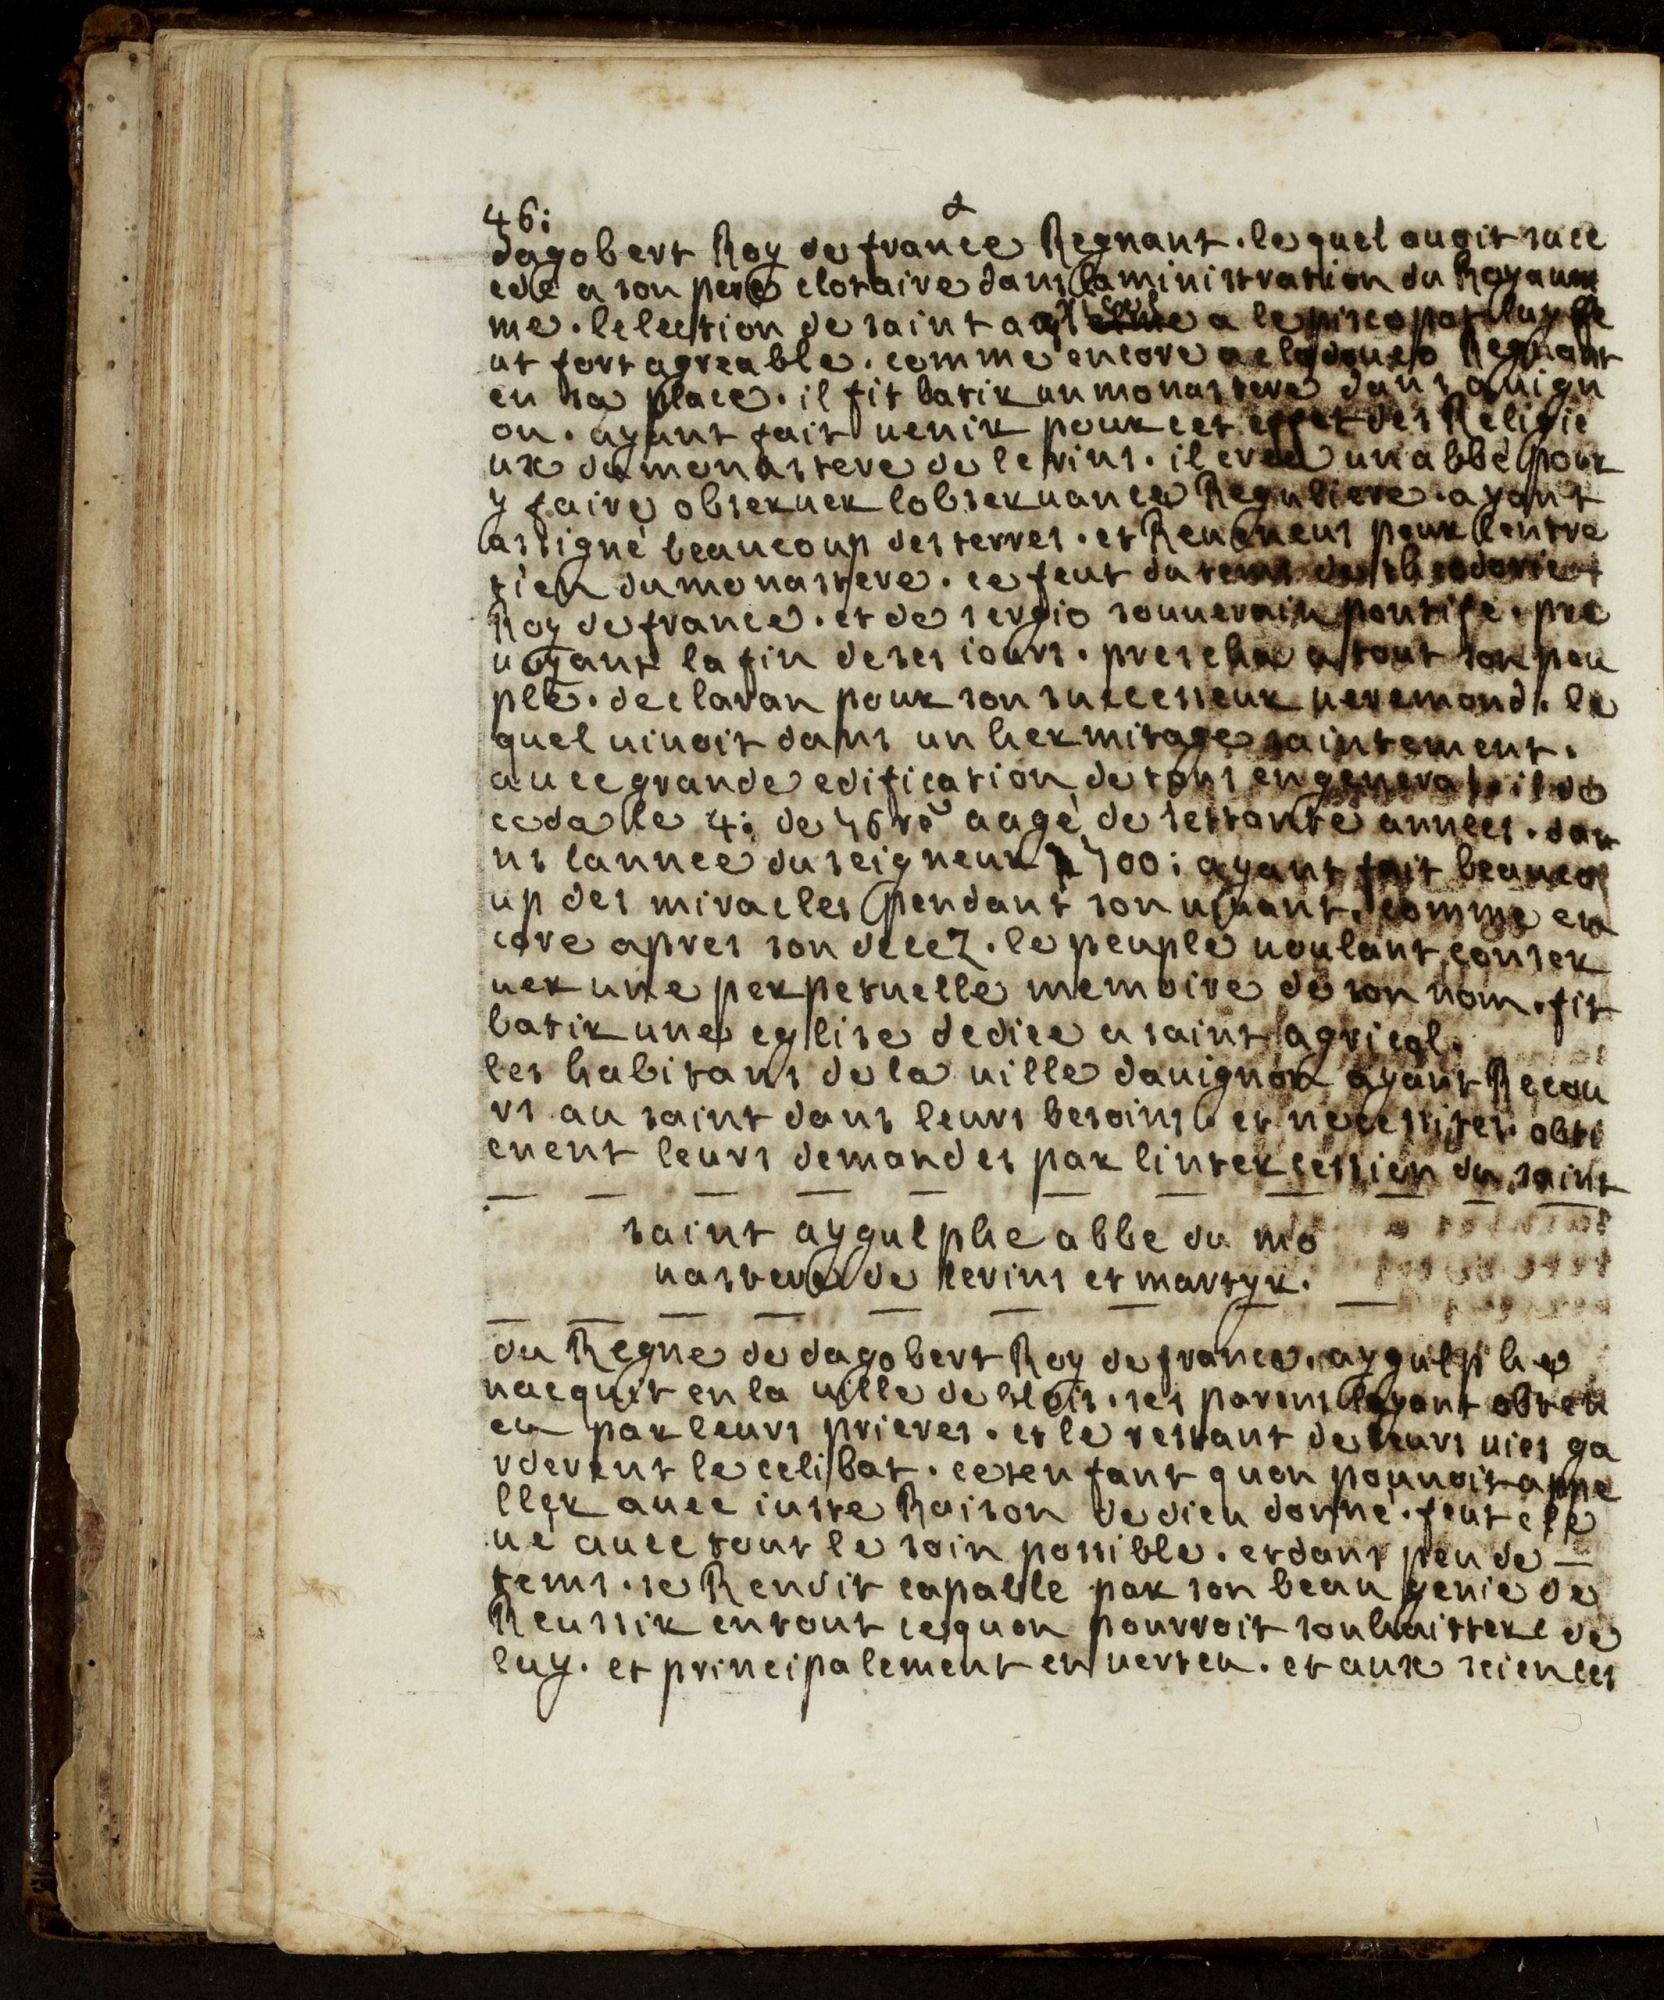 46:
dagobert Roy de france Regnant. le quel auoit succ
ede a son pere clotaire dans laministration du Royaum
me. lelection de saint agricol a lepiscopat luy ffe
ut fort agreable. comme encore a clodoueo Regnant
en sa place. il fit batir un monastere dans auign
on. ayant fait uenir pour cet effet des Religie
ux du monastere de lerins. il crea un abbé pour
y faire obseruer lobseruance Reguliere. ayant
assigné beaucoup des terres. et Reueneus pour lentre
tien du monastere. ce feut du tems de
Roy de france. et de sergio souuerain pontife. pre
uoyant la fin de ses iours. prescha a tout son peu
ple. declaran pour son successeur ueremond. le
quel uiuoit dans un hermitage saintement.
auec grande edification de tous en general. il de
ceda le 4: de 7bre aagé de settante annees. dan
ns lannee du seigneur 700: ayant fait beauco
up des miracles pendant son uiuant. comme en
core apres son decez. le peuple uoulant conser
uer une perpetuelle memoire de son nom. fit
batir une eglise dediee a saint agricol.
les habitans de la uille dauignon ayant Recou
rs au saint dans leurs besoins. et necessites. obti
enent leurs demandes par lintersession du saint
saint aygulphe abbe du mo
nastere de lerins et martyr.
du Regne de dagobert Roy de france. aygulphe
nacquit en la uille de blois. ses parens layant obten
eu par leurs prieres. et le restant de leurs uies ga
rderent le celibat. cet enfant quon pouuoit appe
ller auec iuste Raison de dieu donné. feut ele
ué auec tout le soin possible. et dans peu de —
tems. se Rendit capable par son beau genie de
Reussir en tout ce quon pourroit souhaitter de
luy. et principalement en uerteu. et aux sciences